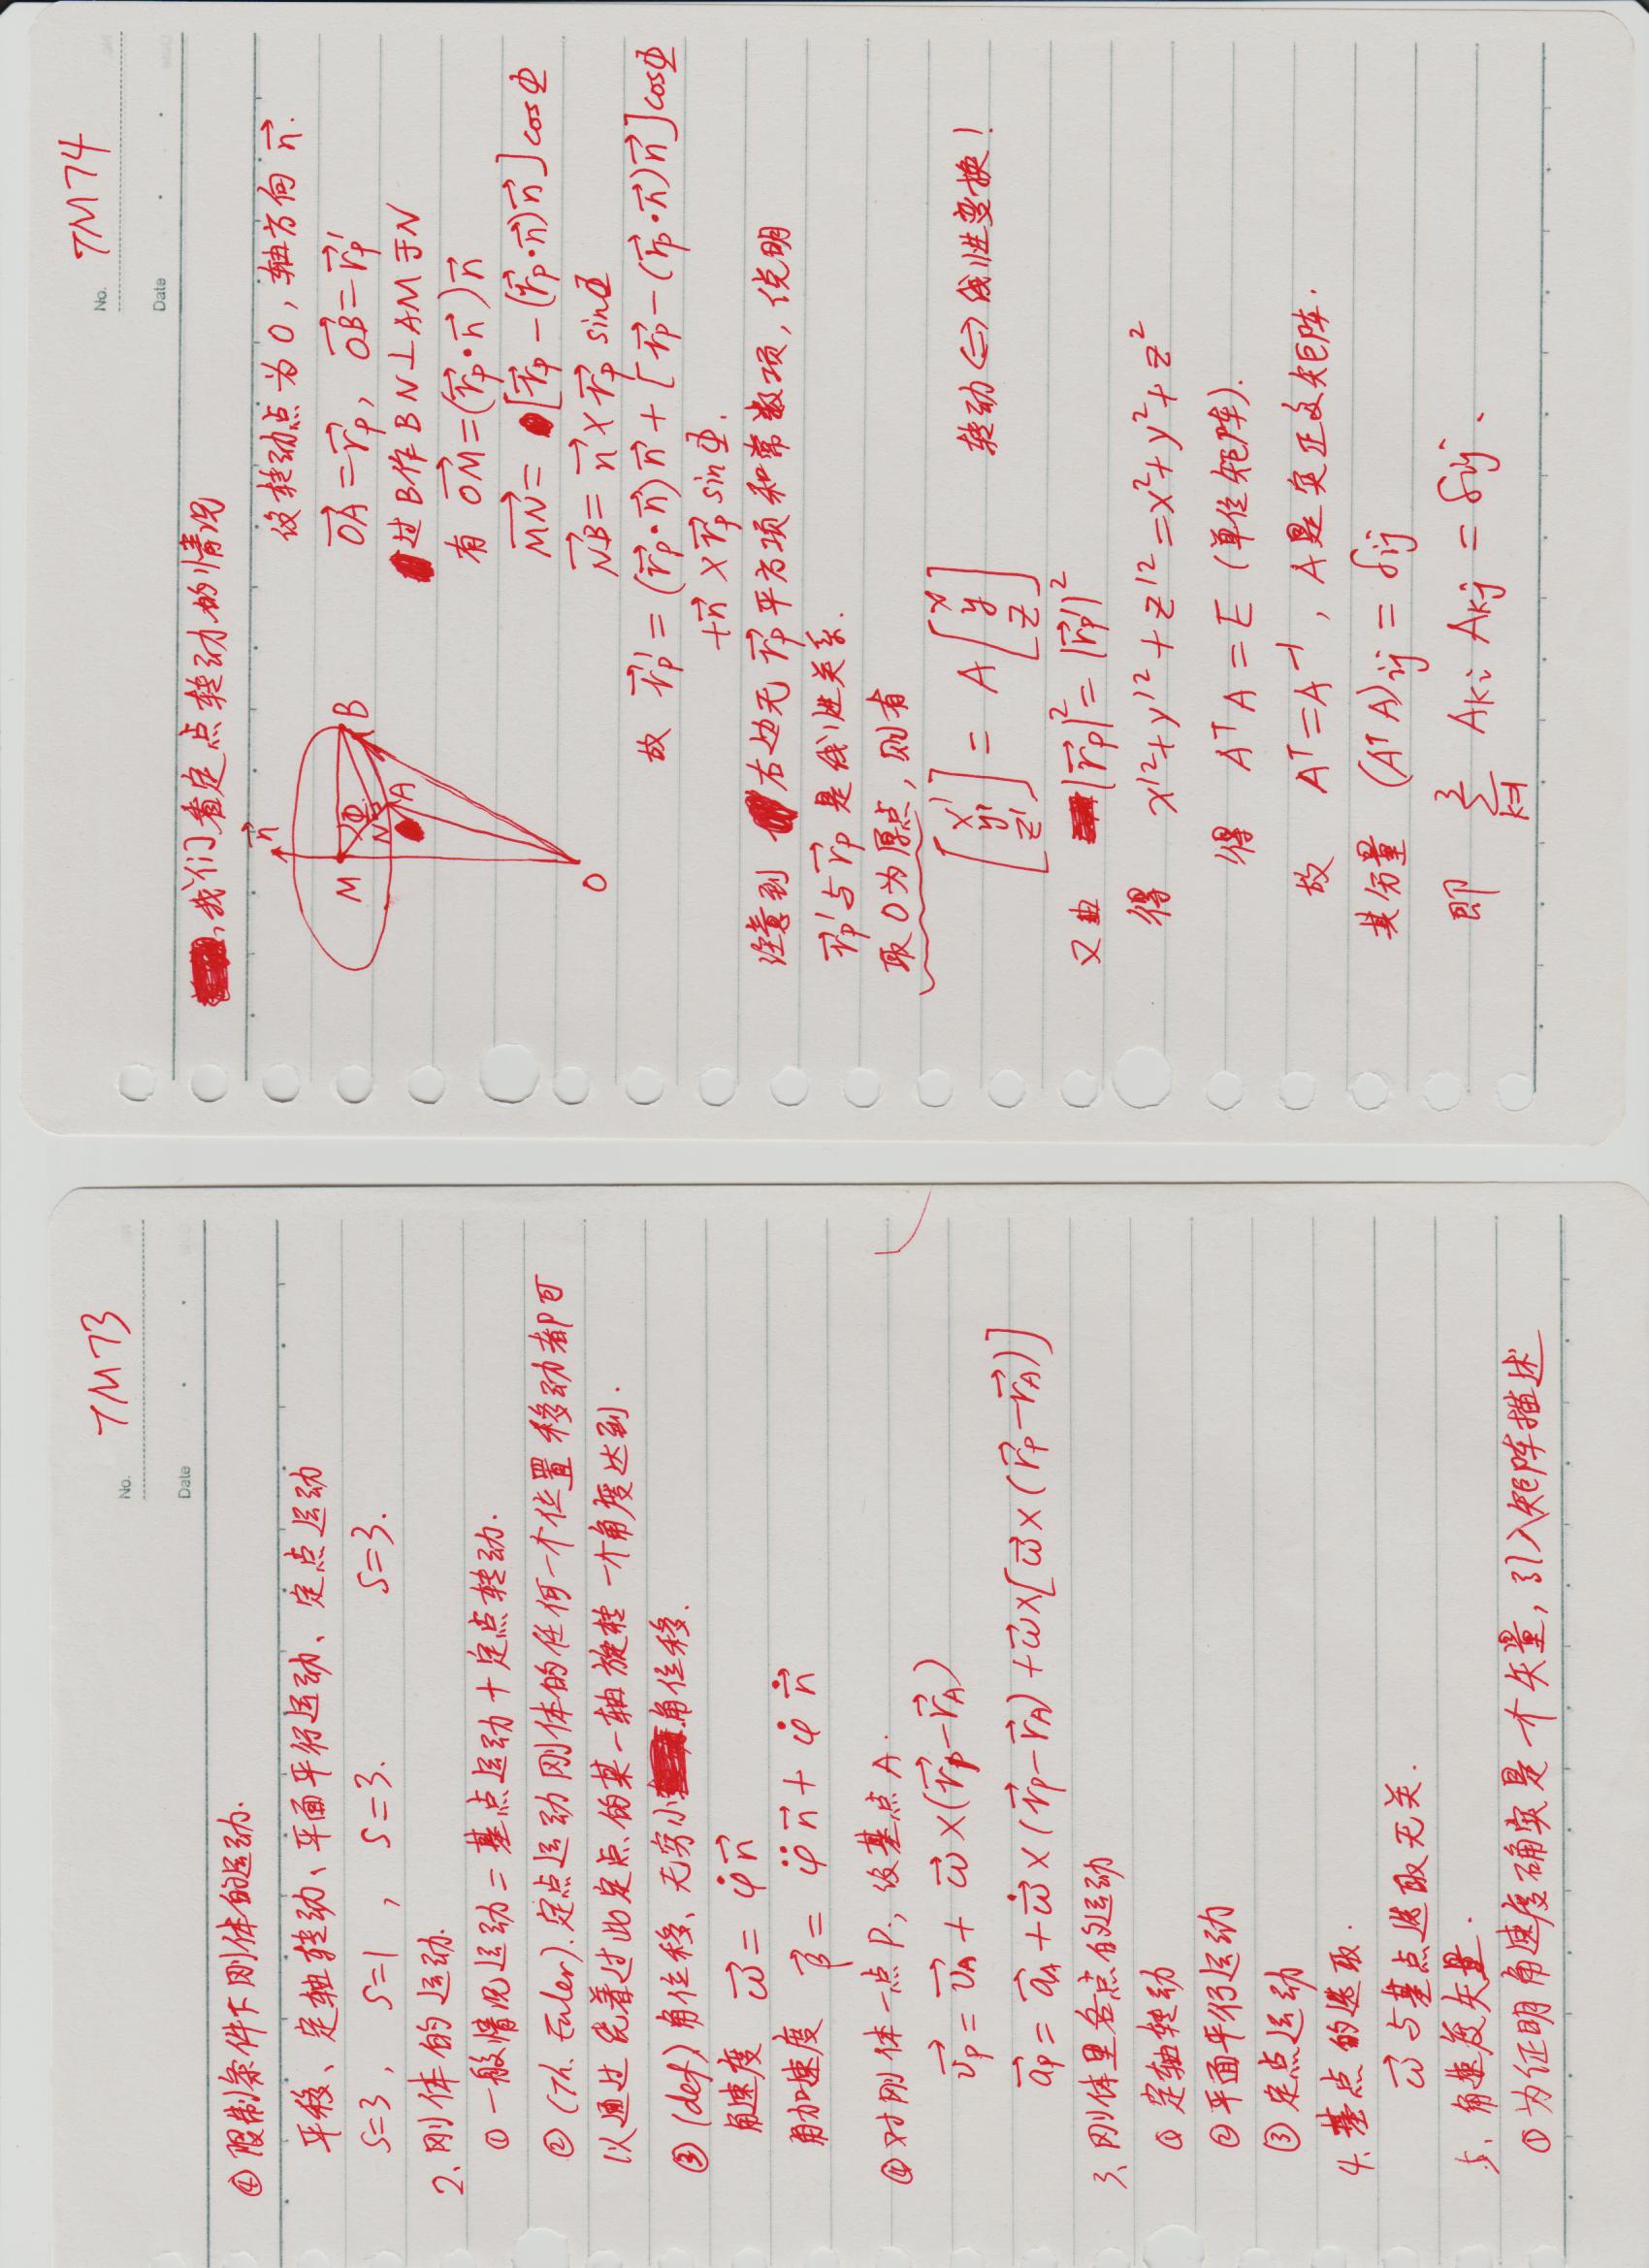 No. TM73
Date
④ 限制条件下刚体的运动.
平移、定轴转动、平面平行运动、定点运动
S=3, S=1, S=3. S=3.
2、刚体的运动.
① 一般情况运动=基点运动+定点转动.
② (Th. Euler). 定点运动刚体的任何一个位置移动都可
以通过绕着过此定点的某一轴旋转一个角度达到.
③ (def) 角位移、无穷小角位移.
角速度 $\vec{\omega} = \dot{\varphi}\vec{n}$
角加速度 $\vec{\beta} = \ddot{\varphi}\vec{n} + \dot{\varphi}\dot{\vec{n}}$
④ 对刚体一点P., 设基点A.
$\vec{v_P} = \vec{v_A} + \vec{\omega} \times (\vec{r_P} - \vec{r_A})$
$\vec{a_P} = \vec{a_A} + \dot{\vec{\omega}} \times (\vec{r_P} - \vec{r_A}) + \vec{\omega} \times [\vec{\omega} \times (\vec{r_P} - \vec{r_A})]$
3、刚体里各点的运动
① 定轴转动
② 平面平行运动
③ 定点运动
4、基点的选取.
$\vec{\omega}$ 与基点选取无关.
5、角速度矢量.
① 为证明角速度确实是一个矢量, 引入矩阵描述
No. TM74
Date
, 我们看定点转动的情况
$\vec{n}$
M Φ B
N A
O
设转动点为O, 轴方向 $\vec{n}$.
$\vec{OA} = \vec{r_P}$, $\vec{OB} = \vec{r_P}'$
过B作BN⊥AM于N
有 $\vec{OM} = (\vec{r_P} \cdot \vec{n})\vec{n}$
$\vec{MN} = [\vec{r_P} - (\vec{r_P} \cdot \vec{n})\vec{n}]\cos\Phi$
$\vec{NB} = \vec{n} \times \vec{r_P} \sin\Phi$
故 $\vec{r_P}' = (\vec{r_P} \cdot \vec{n})\vec{n} + [\vec{r_P} - (\vec{r_P} \cdot \vec{n})\vec{n}]\cos\Phi$
$+ \vec{n} \times \vec{r_P} \sin\Phi$.
注意到右边无 $\vec{r_P}$ 平方项和常数项, 说明
$\vec{r_P}'$ 与 $\vec{r_P}$ 是线性关系.
取O为原点, 则有
$\begin{bmatrix} x' \\ y' \\ z' \end{bmatrix} = A \begin{bmatrix} x \\ y \\ z \end{bmatrix}$ 转动⇔线性变换!
又由 $|\vec{r_P}|^2 = |\vec{r_P}'|^2$
得 $x'^2 + y'^2 + z'^2 = x^2 + y^2 + z^2$
得 $A^T A = E$ (单位矩阵).
故 $A^T = A^{-1}$, A是实正交矩阵.
其分量 $(A^T A)_{ij} = \delta_{ij}$
即 $\sum_{k=1}^{3} A_{ki} A_{kj} = \delta_{ij}$.